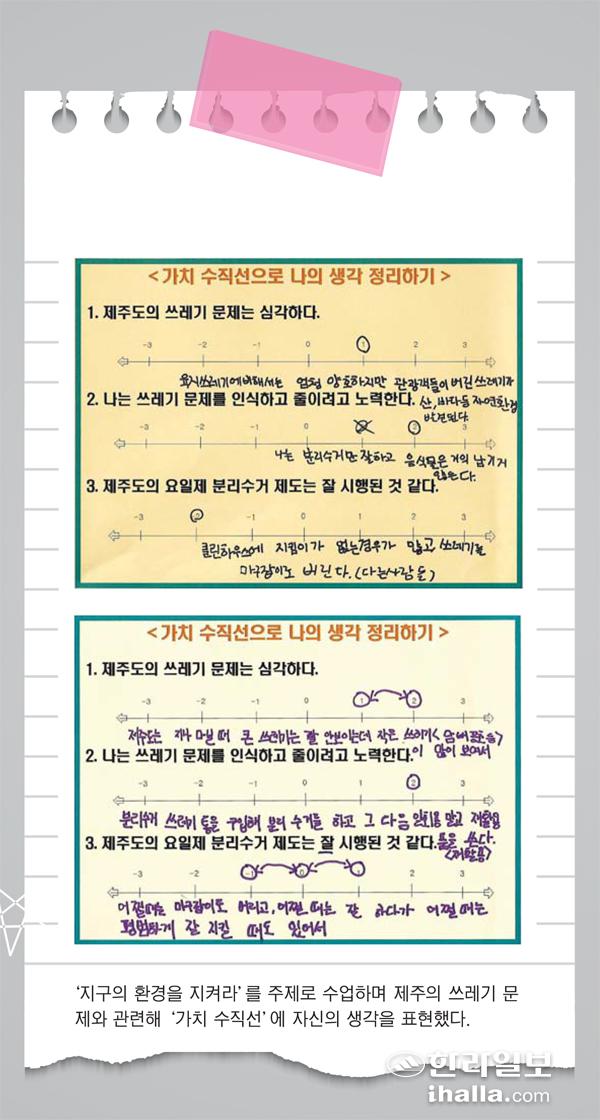 <가치 수직선으로 나의 생각 정리하기>
1. 제주도의 쓰레기 문제는 심각하다.
-3 -2 -1 0 1 2 3
육지쓰레기에 비해서는 엄청 양호하지만 관광객들이 버린 쓰레기가
산, 바다등 자연환경
발견된다.
2. 나는 쓰레기 문제를 인식하고 줄이려고 노력한다.
-3 -2 -1 0 1 2 3
나는 분리수거만 잘하고 음식물은 거의 남기지
않는다.
3. 제주도의 요일제 분리수거 제도는 잘 시행된 것 같다.
-3 -2 -1 0 1 2 3
클린하우스에 지킴이가 없는경우가 많고 쓰레기를
마구잡이로 버린다. (다른사람들)
<가치 수직선으로 나의 생각 정리하기>
1. 제주도의 쓰레기 문제는 심각하다.
-3 -2 -1 0 1 2 3
제주도는 지나 다닐 때 큰 쓰레기는 잘 안보이는데 작은 쓰레기
이 많이 보여서
2. 나는 쓰레기 문제를 인식하고 줄이려고 노력한다.
-3 -2 -1 0 1 2 3
분리수거 쓰레기 통을 구입해 분리 수거를 하고 그 다음 일회용 말고 재활용
틀을 쓴다.
<재활용>
3. 제주도의 요일제 분리수거 제도는 잘 시행된 것 같다.
-3 -2 -1 0 1 2 3
어쩔때는 마구잡이로 버리고, 어쩔 때는 잘 하다가 어쩔 때는
평범하게 잘 지킬 때도 있어서
‘지구의 환경을 지켜라’를 주제로 수업하며 제주의 쓰레기 문
제와 관련해 ‘가치 수직선’에 자신의 생각을 표현했다.
한라일보
ihalla.com